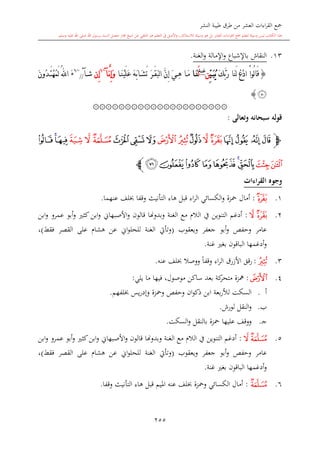 جمع القراءات العشر من طرق طيبة النشر
١٣. النقاش بالإشباع والإمالة والغنة.
قوله سبحانه وتعالى :
﴿ قَالَ إِنَّهُۥ يَقُولُ إِنَّهَا بَقَرَةٌ لَّا ذَلُولٌ تُثِيرُ ٱلْأَرْضَ وَلَا تَسْقِى ٱلْحَرْثَ مُسَلَّمَةٌ لَّا شِيَةَ فِيهَا قَالُوا۟
ٱلْـَٰٔنَ جِئْتَ بِٱلْحَقِّ فَذَبَحُوهَا وَمَا كَادُوا۟ يَفْعَلُونَ ٧١ ﴾
وجوه القراءات
١. بَقَرَةٌ : أمال حمزة والكسائي الراء قبل هاء التأنيث وقفا بخلف عنهما.
٢. بَقَرَةٌ لَّا : أدغم التنوين في اللام مع الغنة وبدونها قالون والأصبهاني وابن كثير وأبو عمرو وابن
عامر وحفص وأبو جعفر ويعقوب (وتأتي الغنة للحلواني عن هشام على القصر فقط)،
وأدغمها الباقون بغير غنة.
٣. تُثِيرُ : رقق الأزرق الراء وقفاً ووصلا بخلف عنه.
٤. ٱلْأَرْضَ : همزة متحركة بعد ساكن موصول، فيها ما يلي:
أ . السكت للأربعة ابن ذكوان وحفص وحمزة وإدريس بخلفهم.
ب. والنقل لورش.
جـ. ووقف عليها حمزة بالنقل والسكت.
٥. مُسَلَّمَةٌ لَّا : أدغم التنوين في اللام مع الغنة وبدونها قالون والأصبهاني وابن كثير وأبو عمرو وابن
عامر وحفص وأبو جعفر ويعقوب (وتأتي الغنة للحلواني عن هشام على القصر فقط)،
وأدغمها الباقون بغير غنة.
٦. مُسَلَّمَةٌ : أمال الكسائي وحمزة بخلف عنه الميم قبل هاء التأنيث وقفا.
٢٥٥